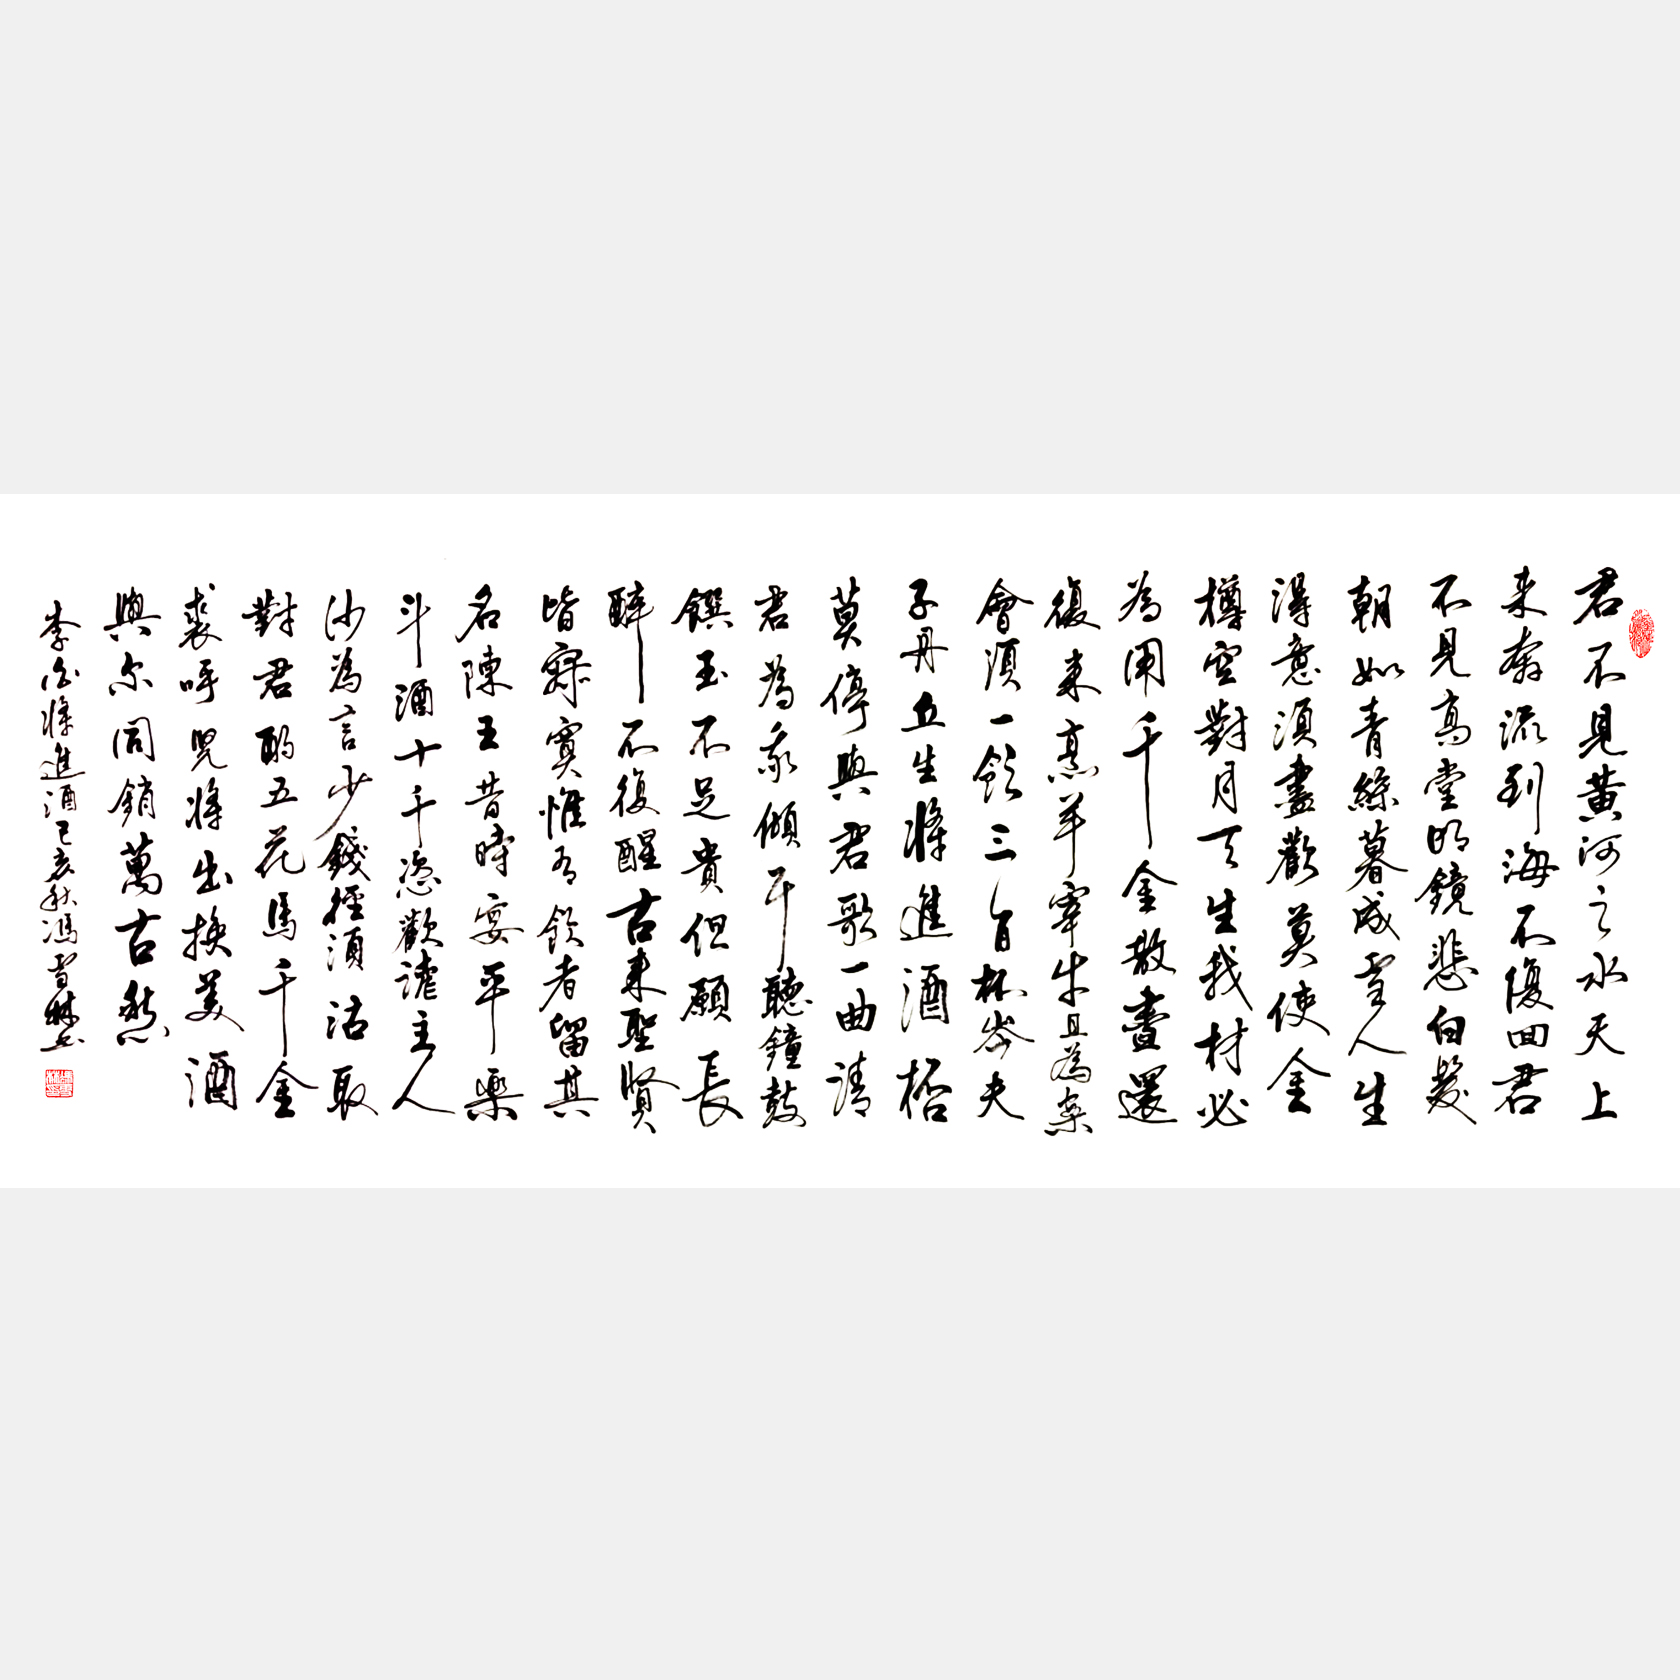 君不見黃河之水天上
来奔流到海不復回君
不見高堂明鏡悲白髮
朝如青絲暮成雪人生
得意須盡歡莫使金
樽空對月天生我材必
為用千金散盡還
復来烹羊宰牛且為樂
會須一飲三百杯岑夫
子丹丘生將進酒杯
莫停與君歌一曲請
君為我傾耳聽鐘鼓
饌玉不足貴但願長
醉不復醒古来聖賢
皆寂寞惟有飲者留其
名陳王昔時宴平樂
斗酒十千恣歡謔主人
沙為言少錢徑須沽取
對君酌五花馬千金
裘呼兒將出換美酒
與尔同銷萬古愁
李白將進酒己亥秋馮雪林書